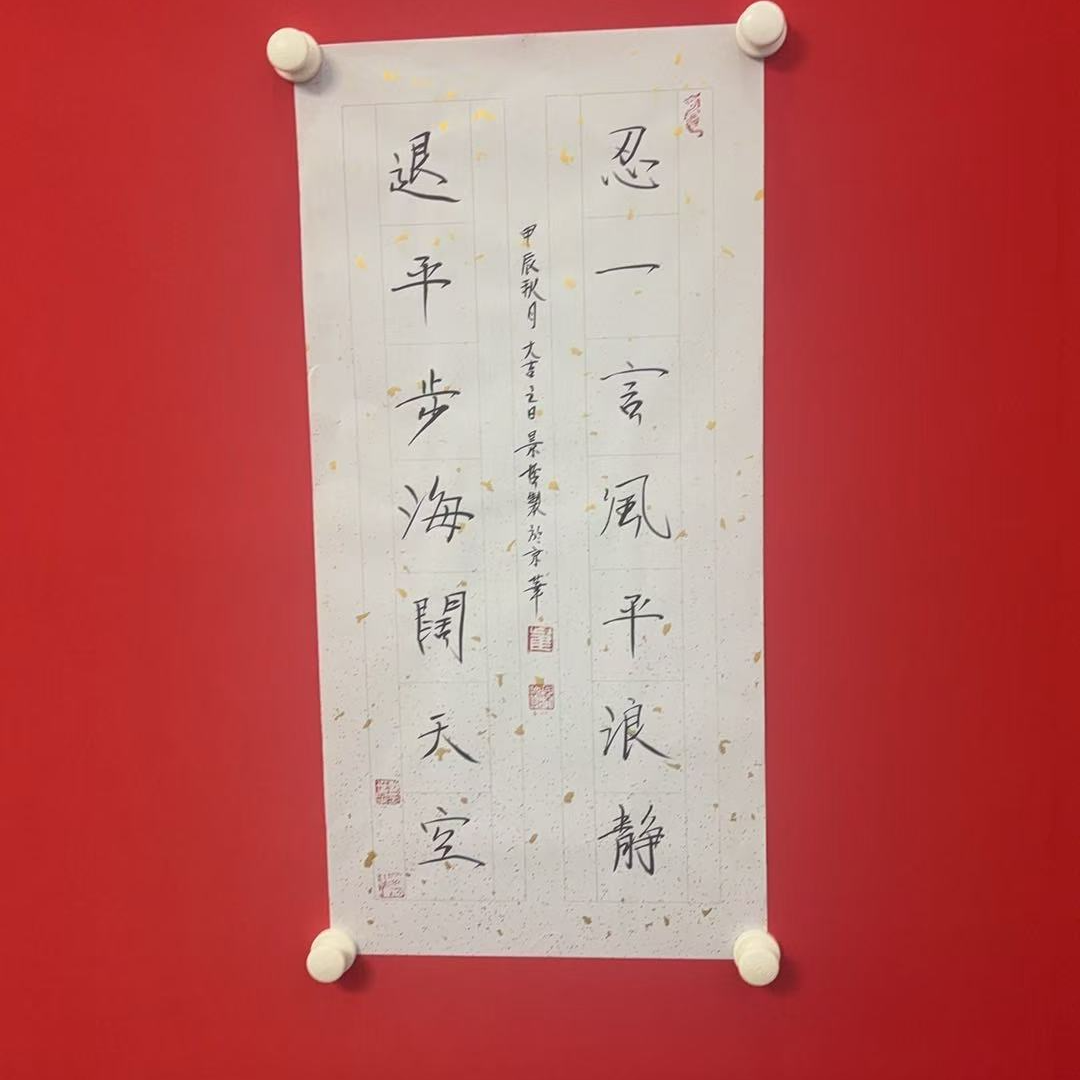 忍一言風平浪静
退平步海闊天空
甲辰秋月大吉之日景製於京華